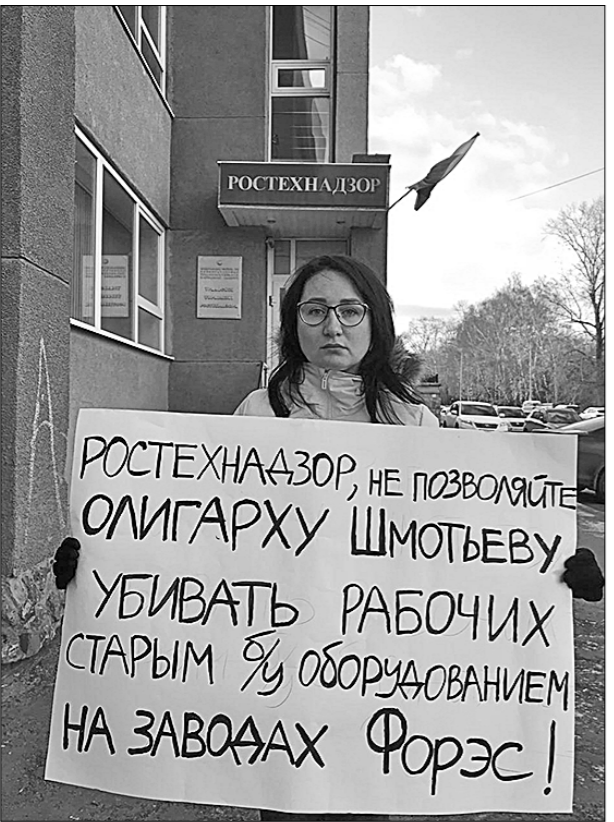 РОСТЕХНАДЗОР
РОСТЕХНАДЗОР, НЕ ПОЗВОЛЯЙТЕ
ОЛИГАРХУ ШМОТЬЕВУ
УБИВАТЬ РАБОЧИХ
СТАРЫМ б/у ОБОРУДОВАНИЕМ
НА ЗАВОДАХ ФОРЭС!